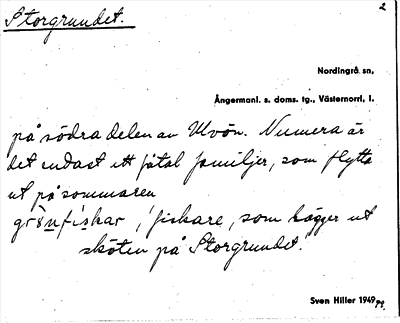 Storgrundet.
2
Nordingrå sn,
Ångermanl. s. doms. tg., Västernorrl, l.
på södra delen av Ulvön. Numera är
det endast ett fåtal familjer, som flytta
ut på sommaren
grὂnfiskar, 'fiskare, som lägger ut
sköten på Storgrundet.'
Sven Hiller 1949